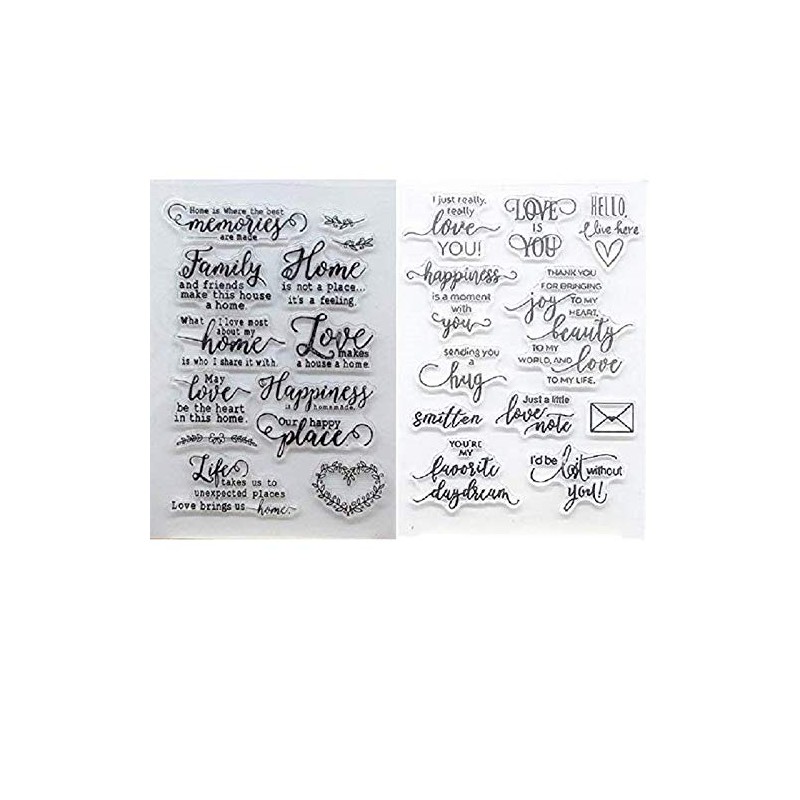 Home is where the best
memories
are made
Family
and friends
make this house
a home.
Home
is not a place...
it's a feeling.
What I love most
about my
home
is who I share it with.
Love
makes
a house a home.
May
love
be the heart
in this home.
Happiness
is homemade.
Our happy
place
Life
takes us to
unexpected places
Love brings us home.
I just really,
really
love
YOU!
LOVE
IS
YOU
HELLO,
I live here
happiness
is a moment
with
you
THANK YOU
FOR BRINGING
joy TO MY
HEART,
beauty
TO MY
WORLD, AND love
TO MY LIFE.
sending you
a
hug
smitten
Just a little
love
note
YOU'RE
MY
favorite
daydream
I'd be lost without
you!